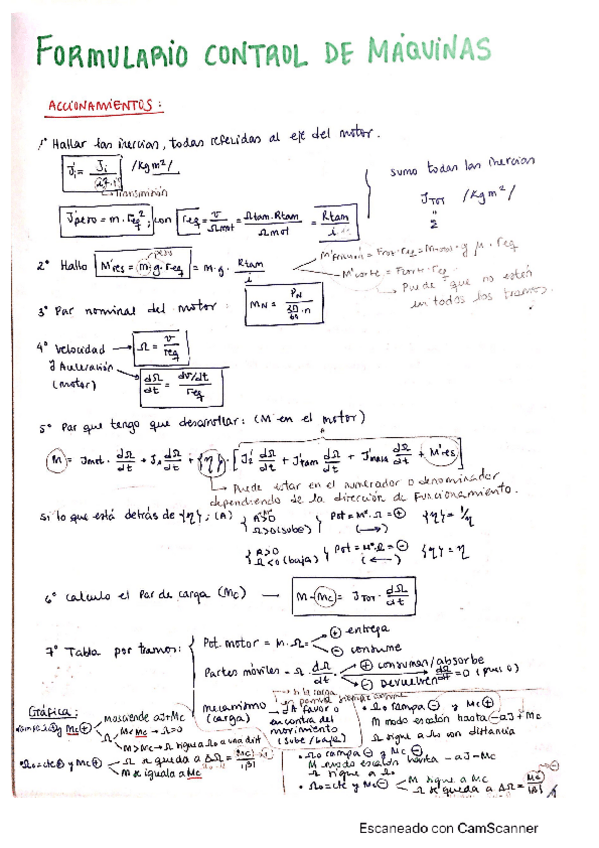 FORMULARIO CONTROL DE MÁQUINAS
ACCIONAMIENTOS:
1° Hallar las inercias, todas referidas al eje del motor.
J'i = Ji /Kg m²/
Transmisión
sumo todas las inercias
JTOT /Kg m²/
J'peso = m · req²; con req = v/Ωmot = Ωtam·Rtam/Ωmot = Rtam/i
2° Hallo M'res = m·g·req = m·g· Rtam/i
peso
Puede que no estén
en todos los tramos.
3° Par nominal del motor: MN = PN / (2π/60 · n)
4° Velocidad → Ω = v/req
y Aceleración
(motor) → dΩ/dt = (dv/dt)/req
5° Par que tengo que desarrollar: (M en el motor)
A
M = Jmot · dΩ/dt + J1 dΩ/dt + {η} · [J'2 dΩ/dt + J'tam dΩ/dt + J'masa dΩ/dt + M'res]
Puede estar en el numerador o denominador
dependiendo de la dirección de funcionamiento.
Si lo que está detrás de {η}: (A) { A>0
Ω>0 (sube) } Pot = M·Ω = ⊕ (→) {η} = 1/η
{ A>0
Ω<0 (baja) } Pot = M·Ω = ⊖ (←) {η} = η
6° Calculo el Par de carga (Mc) → M - Mc = JTOT · dΩ/dt
7° Tabla por tramos:
Pot. motor = M·Ω
⊕ entrega
⊖ consume
Partes móviles - Ω · dΩ/dt
⊕ consumen/absorbe
⊖ Devuelven
mecanismo
(carga)
si la carga
A favor o
en contra del
movimiento
(sube/baja)
Gráfica:
Mc ⊕
M asciende aJ+Mc
M<Mc → Ω=0
M>Mc → Ω sigue a Ωo a una dist
Ωo=cte ⊕ y Mc ⊕
Ω se queda a ΔΩ = |Mc|/|β|
M se iguala a Mc
• Ωo rampa ⊖ y Mc ⊕
M modo escalón hasta -aJ+Mc
Ω sigue a Ωo con distancia
• Ωo rampa ⊖ y Mc ⊖
M modo escalón hasta -aJ-Mc
Ω sigue a Ωo
• Ωo=cte y Mc ⊖
M sigue a Mc
Ω se queda a ΔΩ = |Mc|/|β|
Escaneado con CamScanner